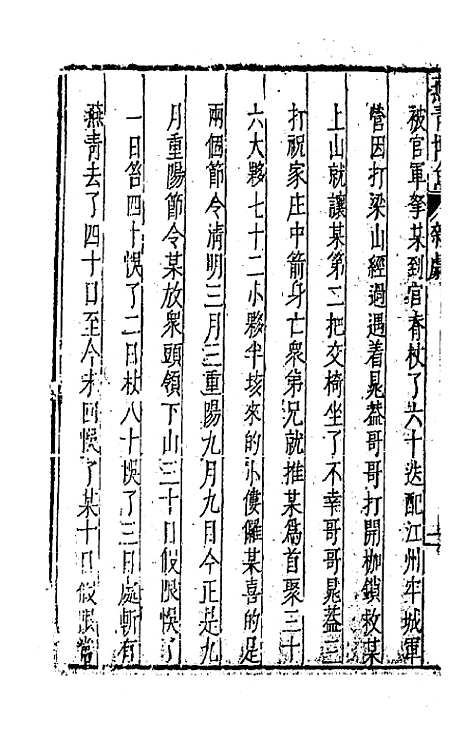 燕青博魚 雜劇
被官軍拏某到官脊杖了六十迭配江州牢城軍
營因打梁山經過遇着晁蓋哥哥打開枷鎖救某
上山就讓某第二把交椅坐了不幸哥哥晁蓋三
打祝家庄中箭身亡衆弟兄就推某爲首聚三十
六大夥七十二小夥半垓來的小僂儸某喜的是
兩個節令清明三月三重陽九月九目今正是九
月重陽節令某放衆頭領下山三十日假限悞了
一日笞四十悞了二日杖八十悞了三日處斬有
燕青去了四十日至今未回悞了某十日假限當